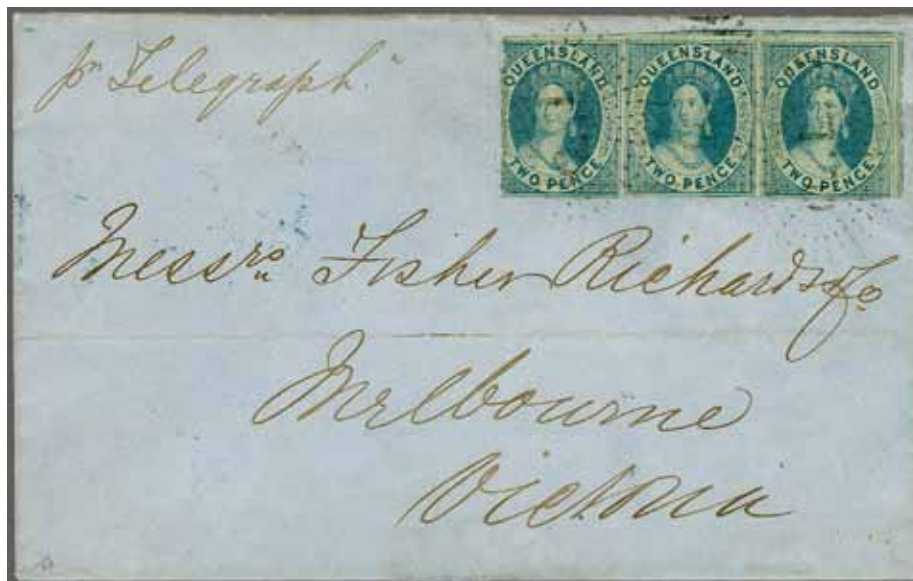 pr Telegraph
QUEENSLAND TWO PENCE
QUEENSLAND TWO PENCE
QUEENSLAND TWO PENCE
Messrs Fisher Richards & Co
Melbourne
Victoria